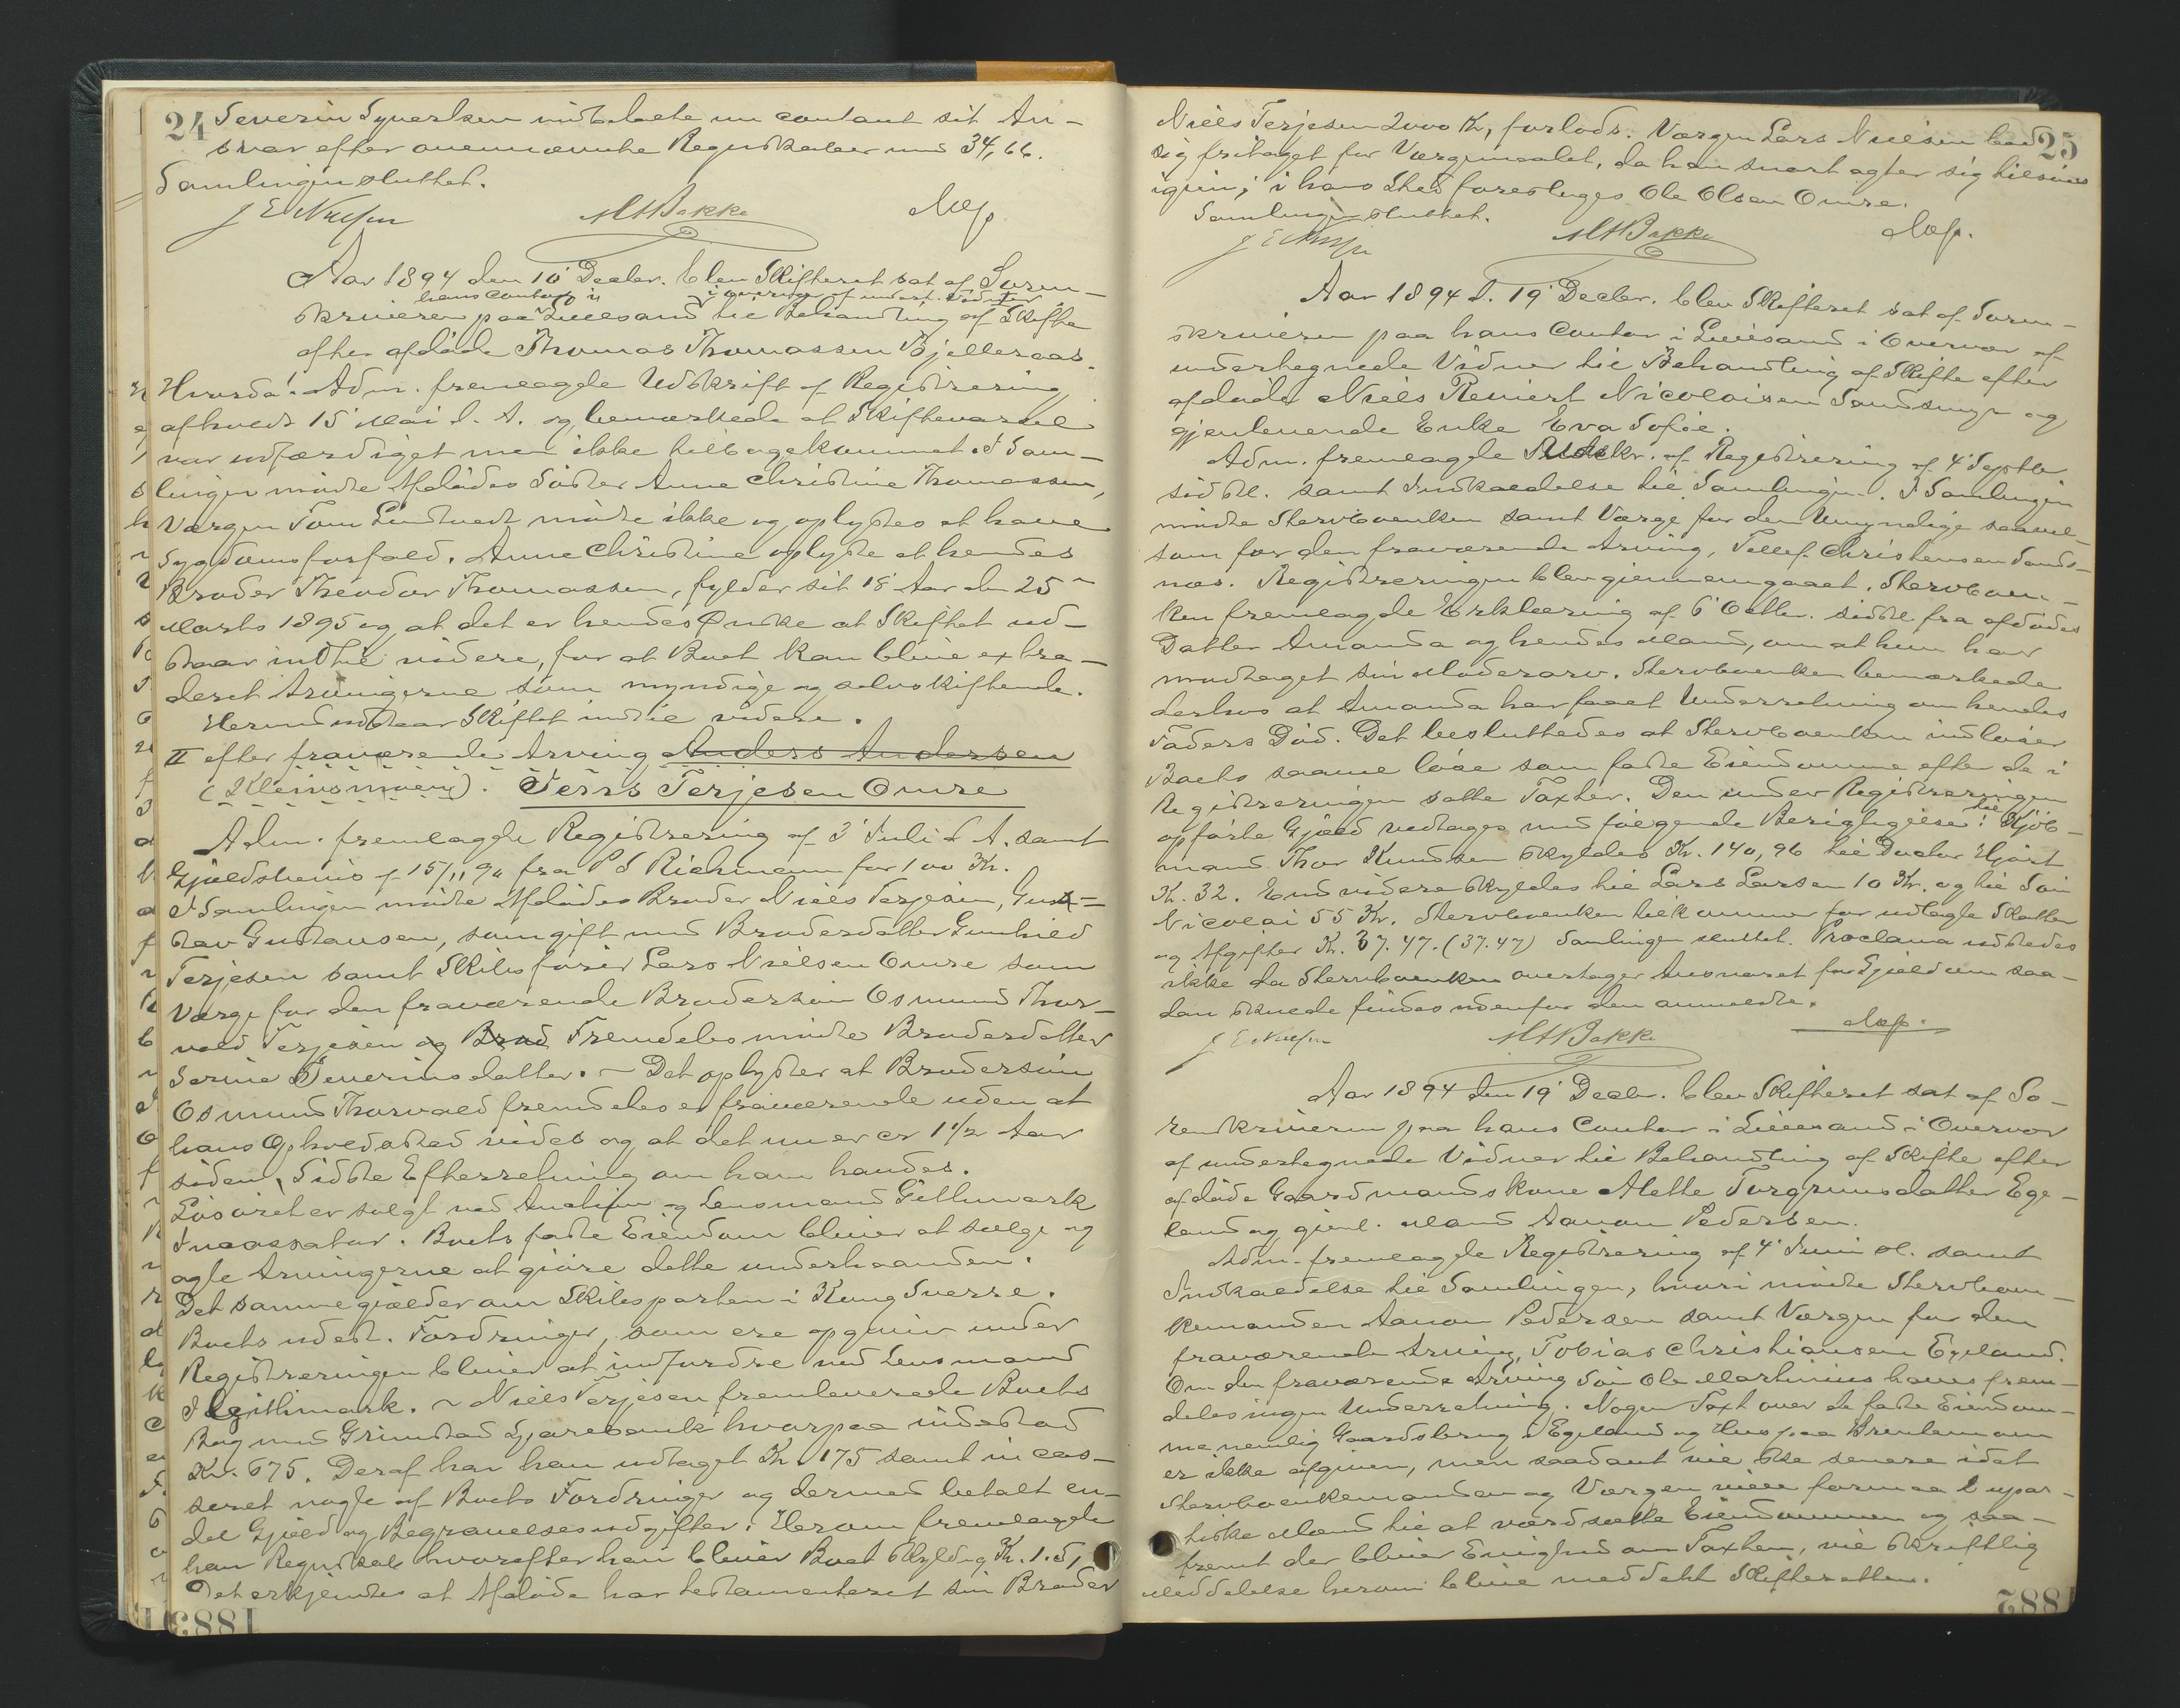 24 Severin Syvertsen indbetalte nu contant sit An-
svar efter ovennævnte Regnskaber med 34,66.
Samlingen sluttet.
J E Nielsen MABakke
Aar 1894 den 10' Decbr. blev Skifteret sat af Soren-
hans Contor i i overvær af undert. Vidner
skriveren paa Lillesand til Behandling af Skifte
efter afdøde Thomas Thomassen Bjelleraas.
Hvorda: Adm. fremlagde Udskrift af Registrering
afholdt 15' Mai d. A. og bemærkede at Skiftevarsel
var udfærdiget men ikke tilbagekommet. I Sam-
lingen mødte Afdødes Søster Anne Christine Thomassen,
Værgen Tom Lindtvedt mødte ikke og oplystes at have
Sygdomsforfald. Anne Christine oplyste at hendes
Broder Theodor Thomassen, fylder sit 18' Aar den 25'
Marts 1895 og at det er hendes Ønske at Skiftet ud-
staar indtil videre, for at Boet kan blive extra-
deret Arvingerne som myndige og selvskiftende.
Hermed udstaar Skiftet indtil videre.
II efter fraværende Arving Anders Andersen
(Kleivsmoen). Terjesen Omre
Adm. fremlagde Registrering af 3' Juli d. A. samt
Gjældsbevis af 15/11 90 fra P S Richmann for 100 Kr.
I Samlingen mødte Afdødes Broder Niels Terjesen, Gus-
tav Gustavsen, som gift med Broderdatter Gunhild
Terjesen samt Skibsfører Lars Nielsen Omre som
Værge for den fraværende Brodersøn Osmund Thor-
vald Terjesen og Brod Fremdeles mødte Broderdatter
Serine Severinsdatter. - Det oplystes at Brodersøn
Osmund Thorvald fremdeles er fraværende uden at
hans Opholdssted vides og at det nu er er 1 1/2 Aar
siden, sidste Efterretning om ham haves.
Løsøret er solgt ved Auction og Lensmand Githmark
Incassator. Boets faste Eiendom bliver at sælge og
agte Arvingerne at gjøre dette underhaanden.
Det samme gjælder om Skibsparten i Kong Sverre.
Boets udest. Fordringer, som ere opgivne under
Registreringen bliver at indfordre ved Lensmand
Githmark. - Niels Terjesen fremleverede Boets
Bog med Grimstad Sparebank hvorpaa indestod
Kr. 675. Deraf har han udtaget Kr 175 samt incas-
seret nogle af Boets Fordringer og dermed betalt en-
del Gjæld og Begravelsesudgifter. Herom fremlagde
han Regnskab hvorefter han bliver Boet skyldig Kr. 1.51
Det erkjendtes at Afdøde har testamenteret sin Broder
1883
25
Niels Terjesen 2000 Kr, forlods. Værgen Lars Nielsen bad
sig fritaget for Værgemaalet, da han snart agter sig tilsøs
igjen; i hans Sted foresloges Ole Olsen Omre.
Samlingen sluttet.
J E Nielsen MABakke
Aar 1894 d. 19' Decbr. blev Skifteret sat af Soren-
skriveren paa hans Contor i Lillesand i Overvær af
undertegnede Vidner til Behandling af Skifte efter
afdøde Niels Reniert Nicolaisen Sandsmyr og
gjenlevende Enke Eva Sofie.
Adm. fremlagde Udskr. af Registrering af 4' Septbr
sidstl. samt Indkaldelse til Samlingen. I Samlingen
mødte Stervboenken samt Værge for den Umyndige saavel-
som for den fraværende Arving, Tellef Christensen Sands-
næs. Registreringen blev gjennemgaaet. Stervboen-
ken fremlagde Erklæring af 6' Octbr. sidstl. fra afdødes
Datter Amanda og hendes Mand, om at hun har
modtaget sin Moderarv. Stervboenken bemærkede
derhos at Amanda har faaet Underretning om hendes
Faders Død. Det besluttedes at Stervboenken indløser
Boets saavel løse som faste Eiendomme efter de i
Registreringen satte Taxter. Den under Registreringen
opførte Gjæld vedtages med følgende Berigtigelse: til Kjøb-
mand Thor Knudsen skyldes Kr. 140,96 til Doctor Hjort
Kr. 32. Endvidere skyldes til Lars Larsen 10 Kr. og til Søn
Nicolai 55 Kr. Stervboenken tilkommer for udlagte Skatter
og Afgifter Kr. 37.47. (37.47) Samlingen sluttet. Proclama udstedes
ikke da Stervboenken overtager Ansvaret for Gjæld om saa-
dan skulde findes udenfor den anmeldte.
J E Nielsen MABakke
Aar 1894 den 19' Decbr. blev Skifteret sat af So-
renskriveren paa hans Contor i Lillesand i Overvær
af undertegnede Vidner til Behandling af Skifte efter
afdøde Gaardmandskone Alette Torgrimsdatter Ege-
land og gjenl. Mand Aanon Pedersen.
Adm. fremlagde Registrering af 4' Juni sl. samt
Indkaldelse til Samlingen, hvori mødte Stervboen-
kemanden Aanon Pedersen samt Værgen for den
fraværende Arving, Tobias Christiansen Egeland.
Om den fraværende Arving Søn Ole Martinius haves frem-
deles ingen Underretning. Nogen Taxt over de faste Eiendom-
me nemlig Gaardsbrug i Egeland og Hus paa
er ikke afgiven, men saadant vil ske senere idet
Stervboenkemanden og Værgen ville formaa 2 upar-
tiske Mænd til at værdsætte Eiendommen og saa-
fremt der bliver Enighed om Taxten, vil skriftlig
Meddelelse herom blive meddelt Skifteretten.
882